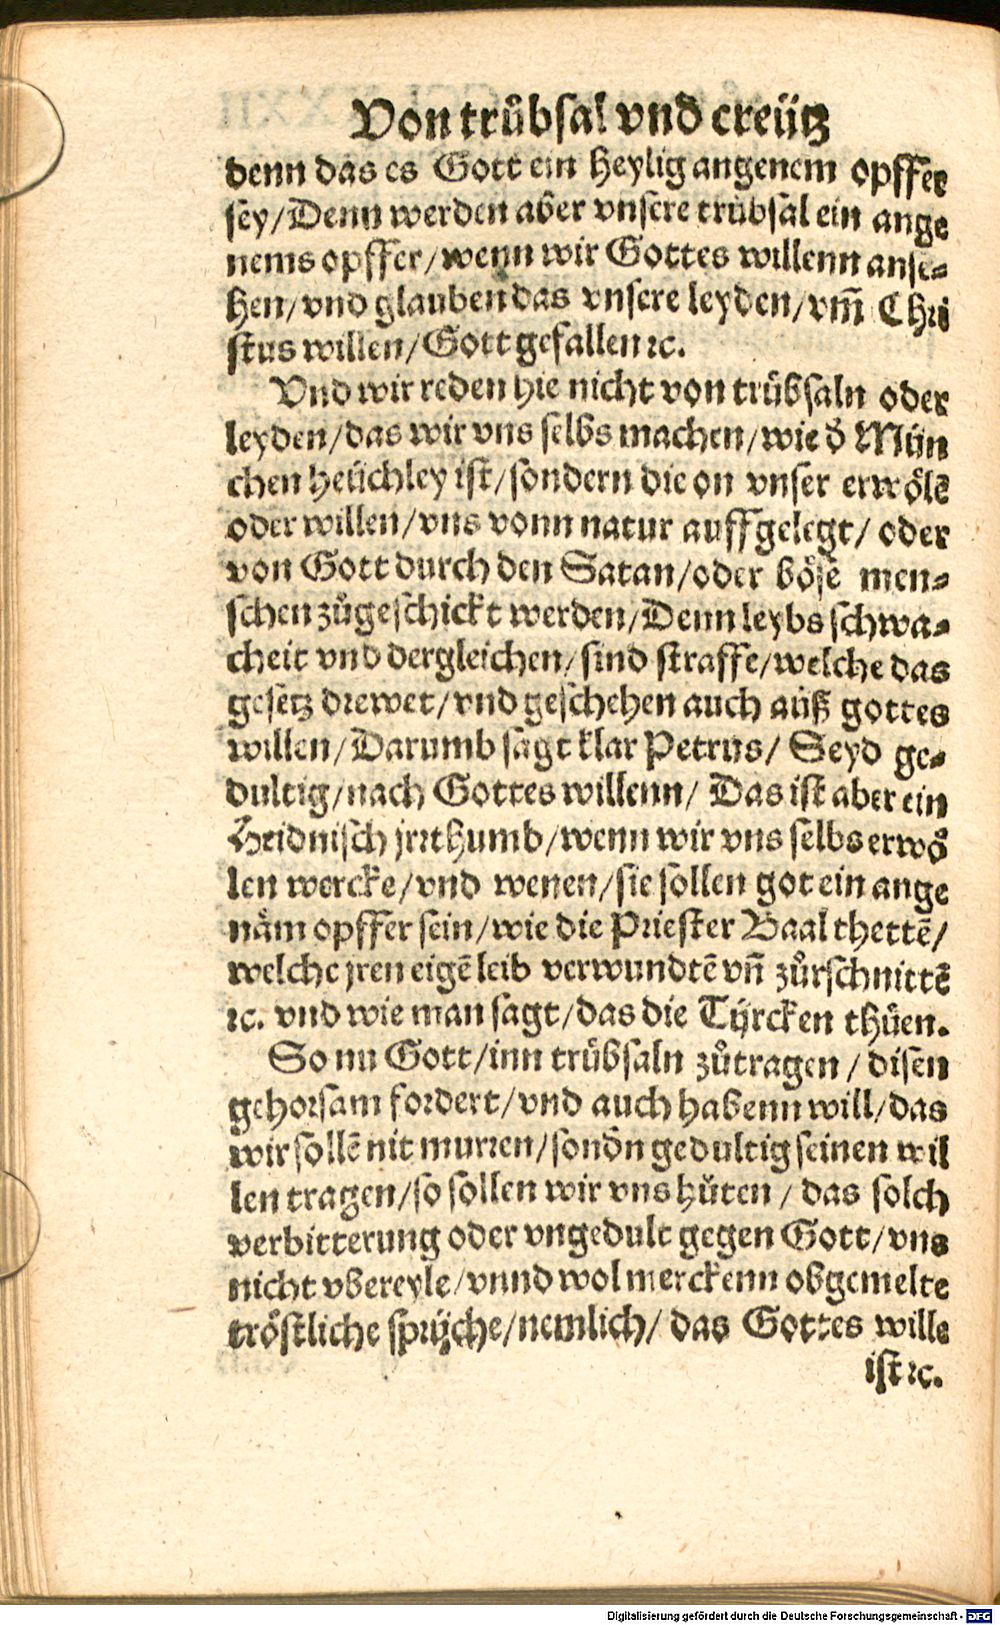 Von truͤbſal vnd creuͤtz
denn das es Gott ein heylig angenem opffer
ſey/Denn werden aber vnſere truͤbſal ein ange
nems opffer/wenn wir Gottes willenn anſe⸗
hen/vnd glauben das vnſere leyden/vm̃ Chri
ſtus willen/Gott gefallen ꝛc.
Vnd wir reden hie nicht von truͤbſaln oder
leyden/das wir vns ſelbs machen/wie d̓ Muͤn
chen heuͤchley iſt/ſondern die on vnſer erwoͤlē
oder willen/vns vonn natur auffgelegt/ oder
von Gott durch den Satan/oder boͤſe men⸗
ſchen zuͦgeſchickt werden/Denn leybs ſchwa⸗
cheit vnd dergleichen/ſind ſtraffe/welche das
geſetz drewet/vnd geſchehen auch auß gottes
willen/Darumb ſagt klar Petrus/ Seyd ge⸗
dultig/nach Gottes willenn/ Das iſt aber ein
Heidniſch jrrthumb/wenn wir vns ſelbs erwoͤ
len wercke/vnd wenen/ſie ſollen got ein ange
naͤm opffer ſein/wie die Prieſter Baal thettē/
welche jren eigē leib verwundtē vñ zuͦrſchnittē
ꝛc. vnd wie man ſagt/das die Tuͤrcken thuͤen.
So nu Gott/inn truͤbſaln zuͦtragen/ diſen
gehorſam fordert/vnd auch habenn will/das
wir ſollē nit murren/ſond̓n gedultig ſeinen wil
len tragen/ſo ſollen wir vns huͤten/ das ſolch
verbitterung oder vngedult gegen Gott/vns
nicht vbereyle/vnnd wol merckenn obgemelte
troͤſtliche ſpruͤche/nemlich/ das Gottes wille
iſt ꝛc.
Digitalisierung gefördert durch die Deutsche Forschungsgemeinschaft - DFG